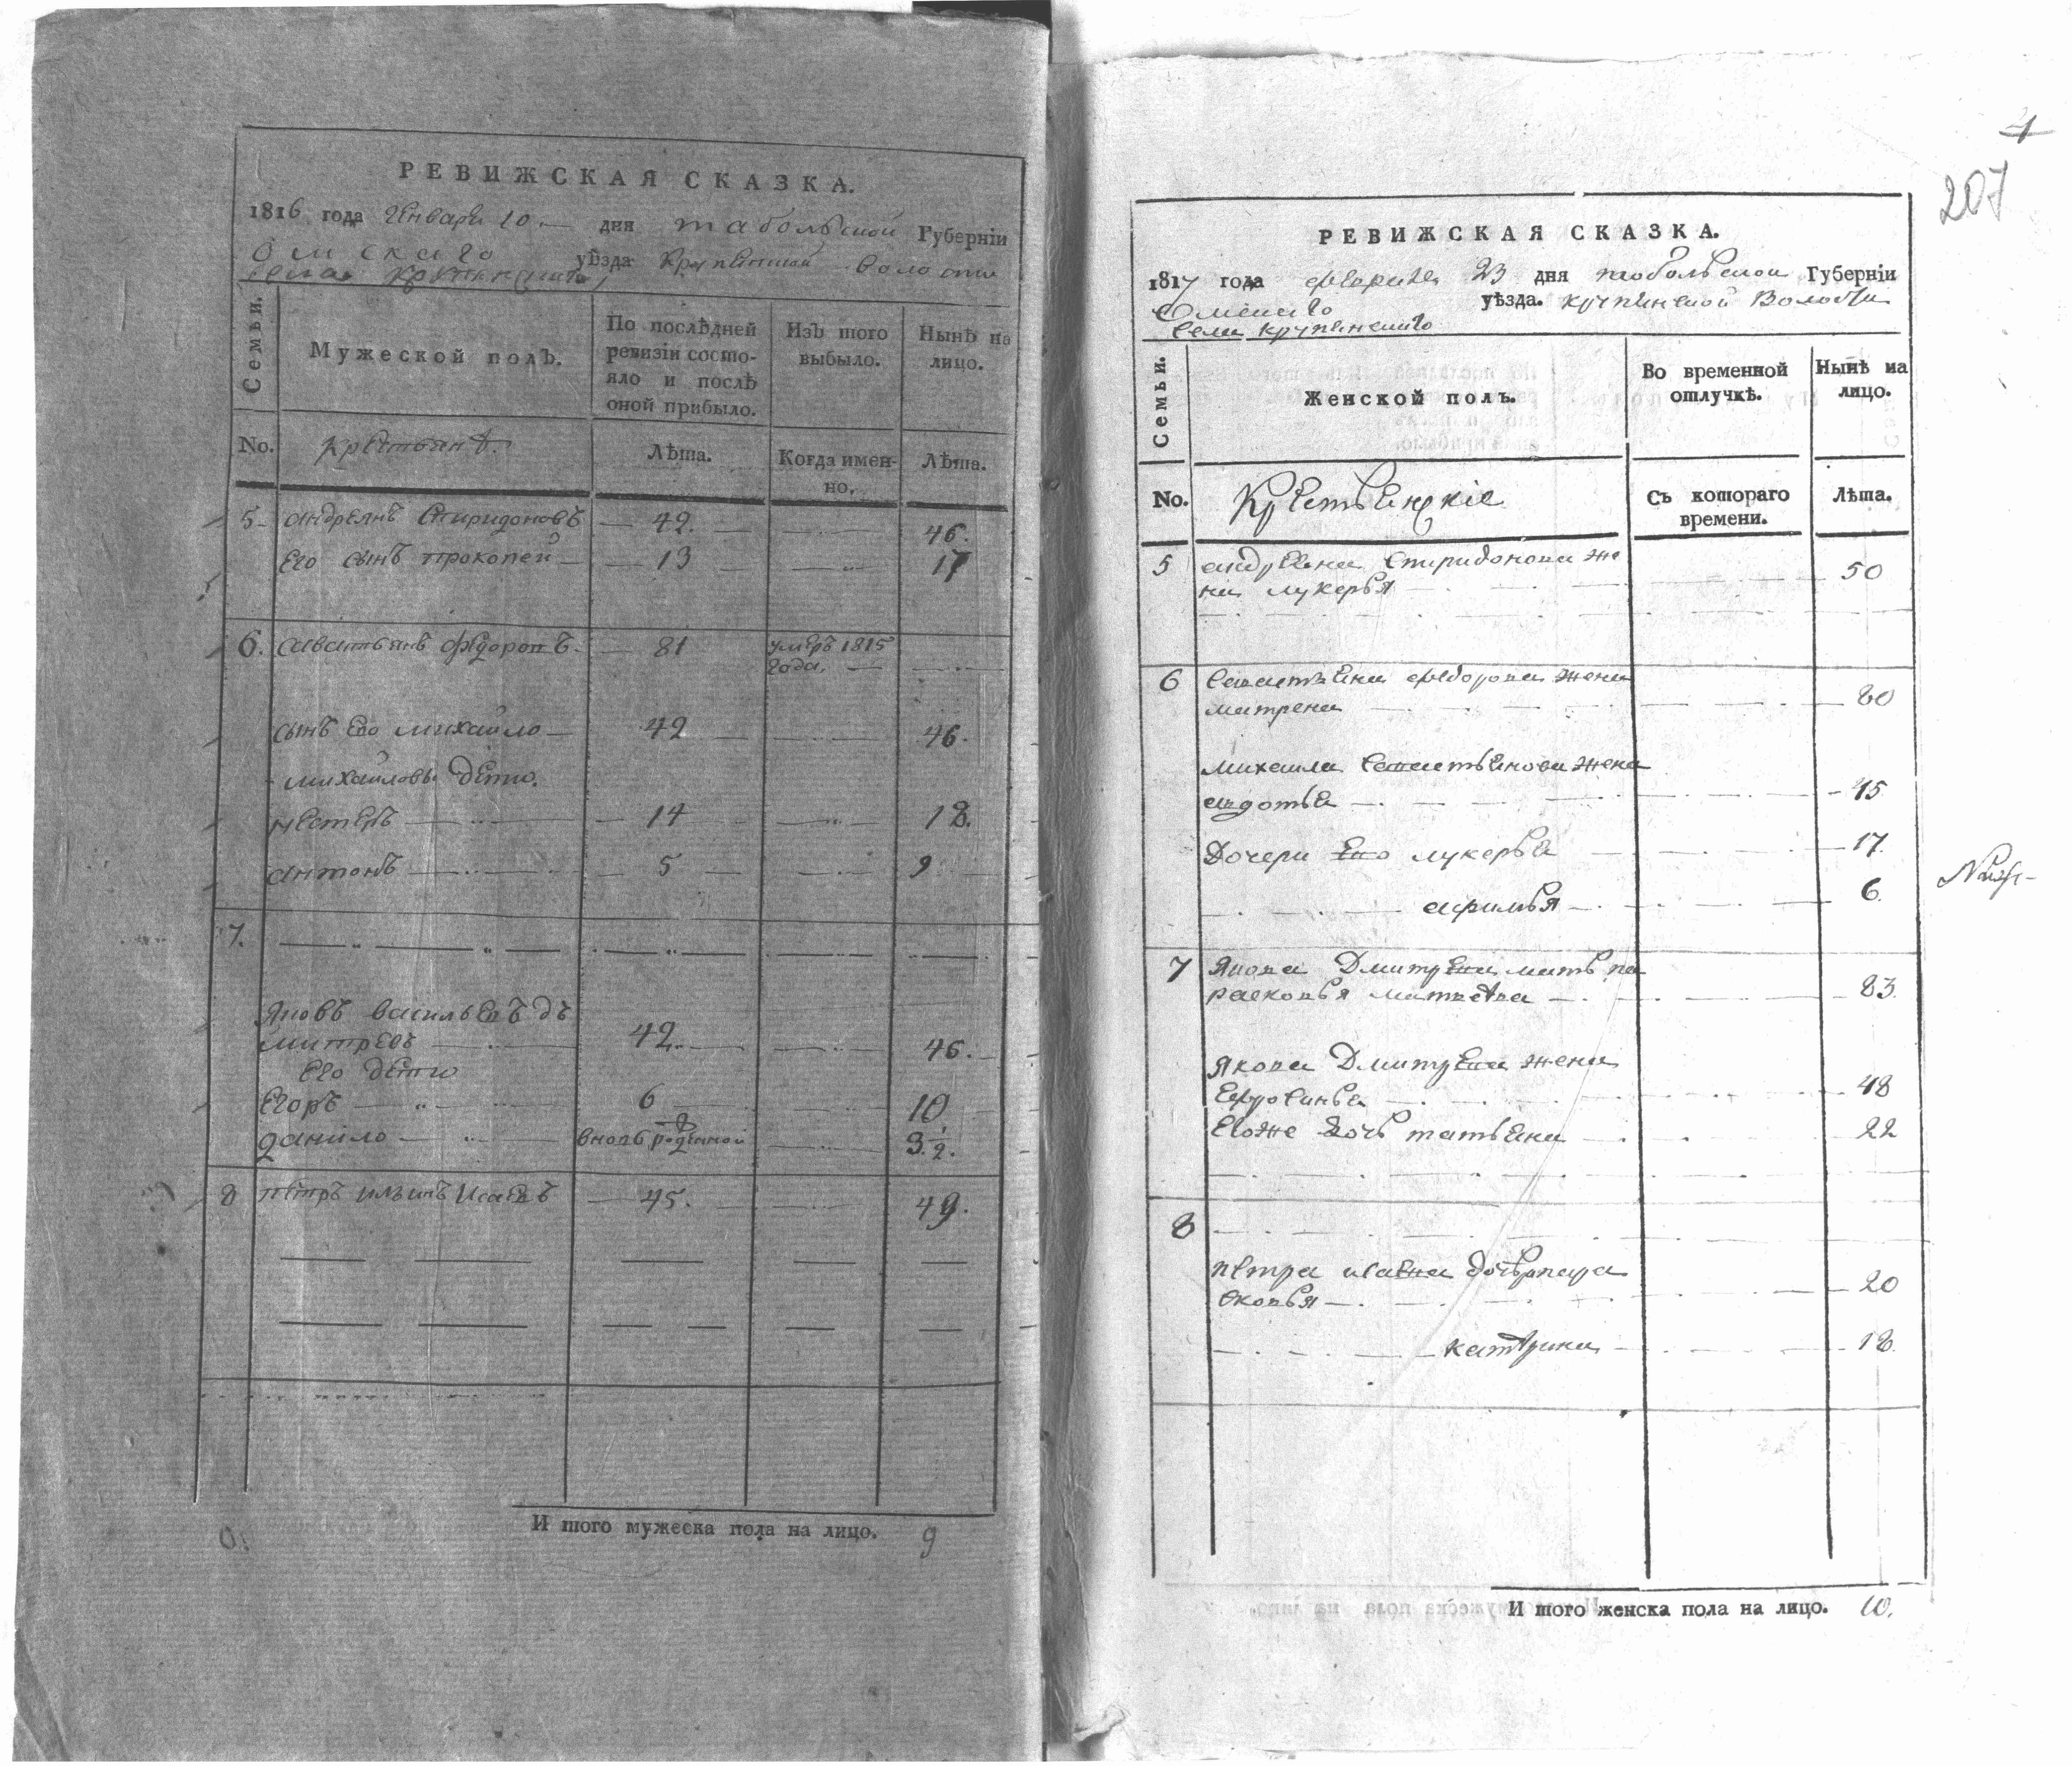 РЕВИЖСКАЯ СКАЗКА.
1816 года Генваря 10 дня табольской Губерніи
Омскаго уѣзда Крупенской волости
села Крупенскаго
Семьи.
Мужеской полъ.
По послѣдней
ревизіи состо-
яло и послѣ
оной прибыло.
Изъ того
выбыло.
Нынѣ на
лицо.
No. крестьянѣ. Лѣта. Когда имен-
но. Лѣта.
5 андреянъ Спиридоновъ 42. 46.
Его сынъ прокопей 13 17
6. Савастьянъ Федоровъ 81 умеръ 1815
года.
сынъ Его михайло 42 46.
михайловы дѣти.
нестеръ 14 18.
антонъ 5 9
7.
Яковъ васильевъ дъ
митревъ 42. 46.
Его дѣти
Егоръ 6 10
данило вновь рожденной 3. 2.
8 петръ ильинъ Исаевъ 45. 49.
И того мужеска пола на лицо. 9
4
207
РЕВИЖСКАЯ СКАЗКА.
1817 года февраля 23 дня тобольской Губерніи
Омскаго уѣзда. крупинской Волости
села крупенскаго
Семьи.
Женской полъ.
Во временной
отлучкѣ.
Нынѣ на
лицо.
No. Крестьенскіе Съ котораго
времени. Лѣта.
5 андреяна Спиридонова же
на лукерья 50
6 Савастьяна федорова жена
матрена 80
михаила Савастьянова жена
авдотья 45
Дочери Его лукерья 17
афимья 6
7 Якова Дмитрева мать па
расковья матвѣва 83.
якова Дмитрева жена
Ефросинья 48
Евоже дочь татьяна 22
8
петра исаева дочь пара
сковья 20
катѣрина 18
И того женска пола на лицо. 10.